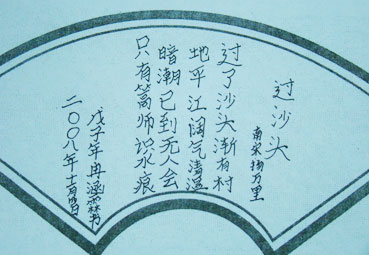 过沙头
南宋杨万里
过了沙头渐有村
地平江阔气清温
暗潮已到无人会
只有篙师识水痕
戊子年冉涵霖书
二〇〇八年